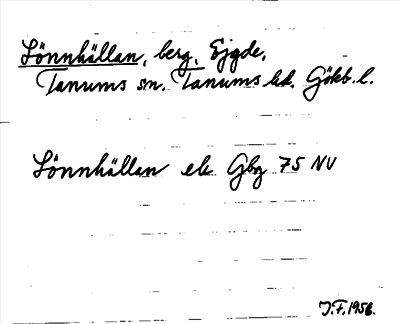 Lönnhällan, berg, Ejgde,
Tanums sn. Tanums hd. Götb. l.
Lönnhällan ek Gbg 75 NV
J.F. 1956.